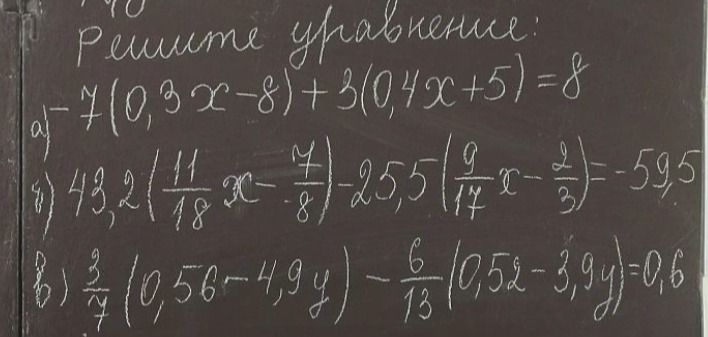 Решите уравнение:
а) -7(0,3x-8)+3(0,4x+5)=8
б) 43,2(11/18 x - 7/8)-25,5(9/17 x - 2/3)=-59,5
в) 3/7 (0,56-4,9y) - 6/13 (0,52-3,9y)=0,6